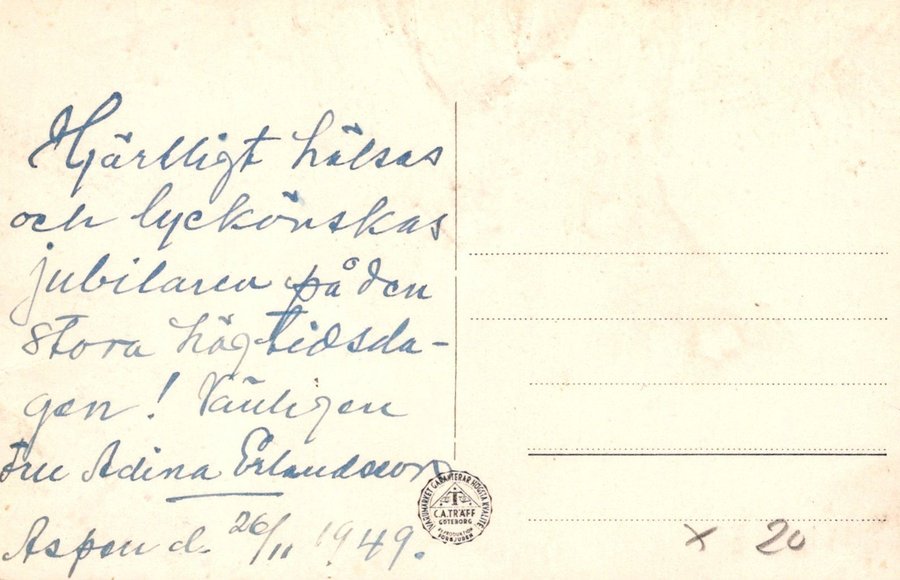 Hjärtligt hälsas
och lyckönskas
jubilaren på den
stora högtidsda-
gen! Vänligen
Fru Adina Erlandsson
Aspen d. 26/11 1949.
VARUMÄRKET GARANTERAR HÖGSTA KVALITÉ
C.A.TRÄFF
GÖTEBORG
REPRODUKTION
FÖRBJUDEN
x 20